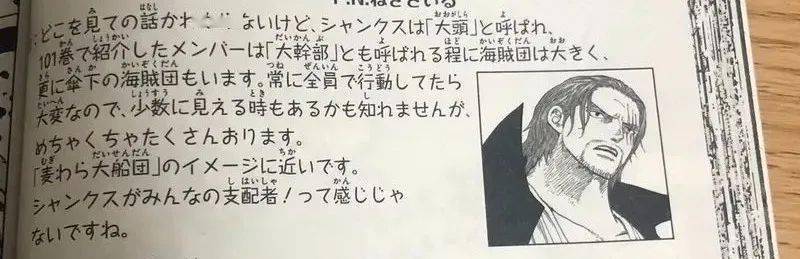 P.N.ねぎさいる
:どこを見ての話かわ ないけど、シャンクスは「大頭」と呼ばれ、
101巻で紹介したメンバーは「大幹部」とも呼ばれる程に海賊団は大きく、
更に傘下の海賊団もいます。常に全員で行動してたら
大変なので、少数に見える時もあるかも知れませんが、
めちゃくちゃたくさんおります。
「麦わら大船団」のイメージに近いです。
シャンクスがみんなの支配者!って感じじゃ
ないですね。